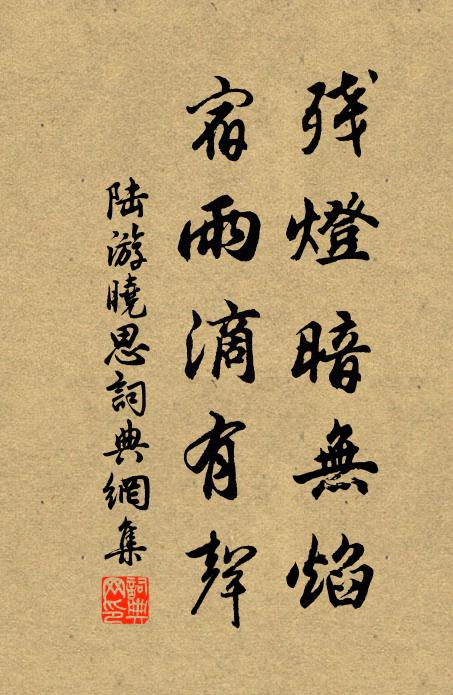 残燈暗無焰
宿雨滴有聲
陆游曉思詞典網集
詞典網印